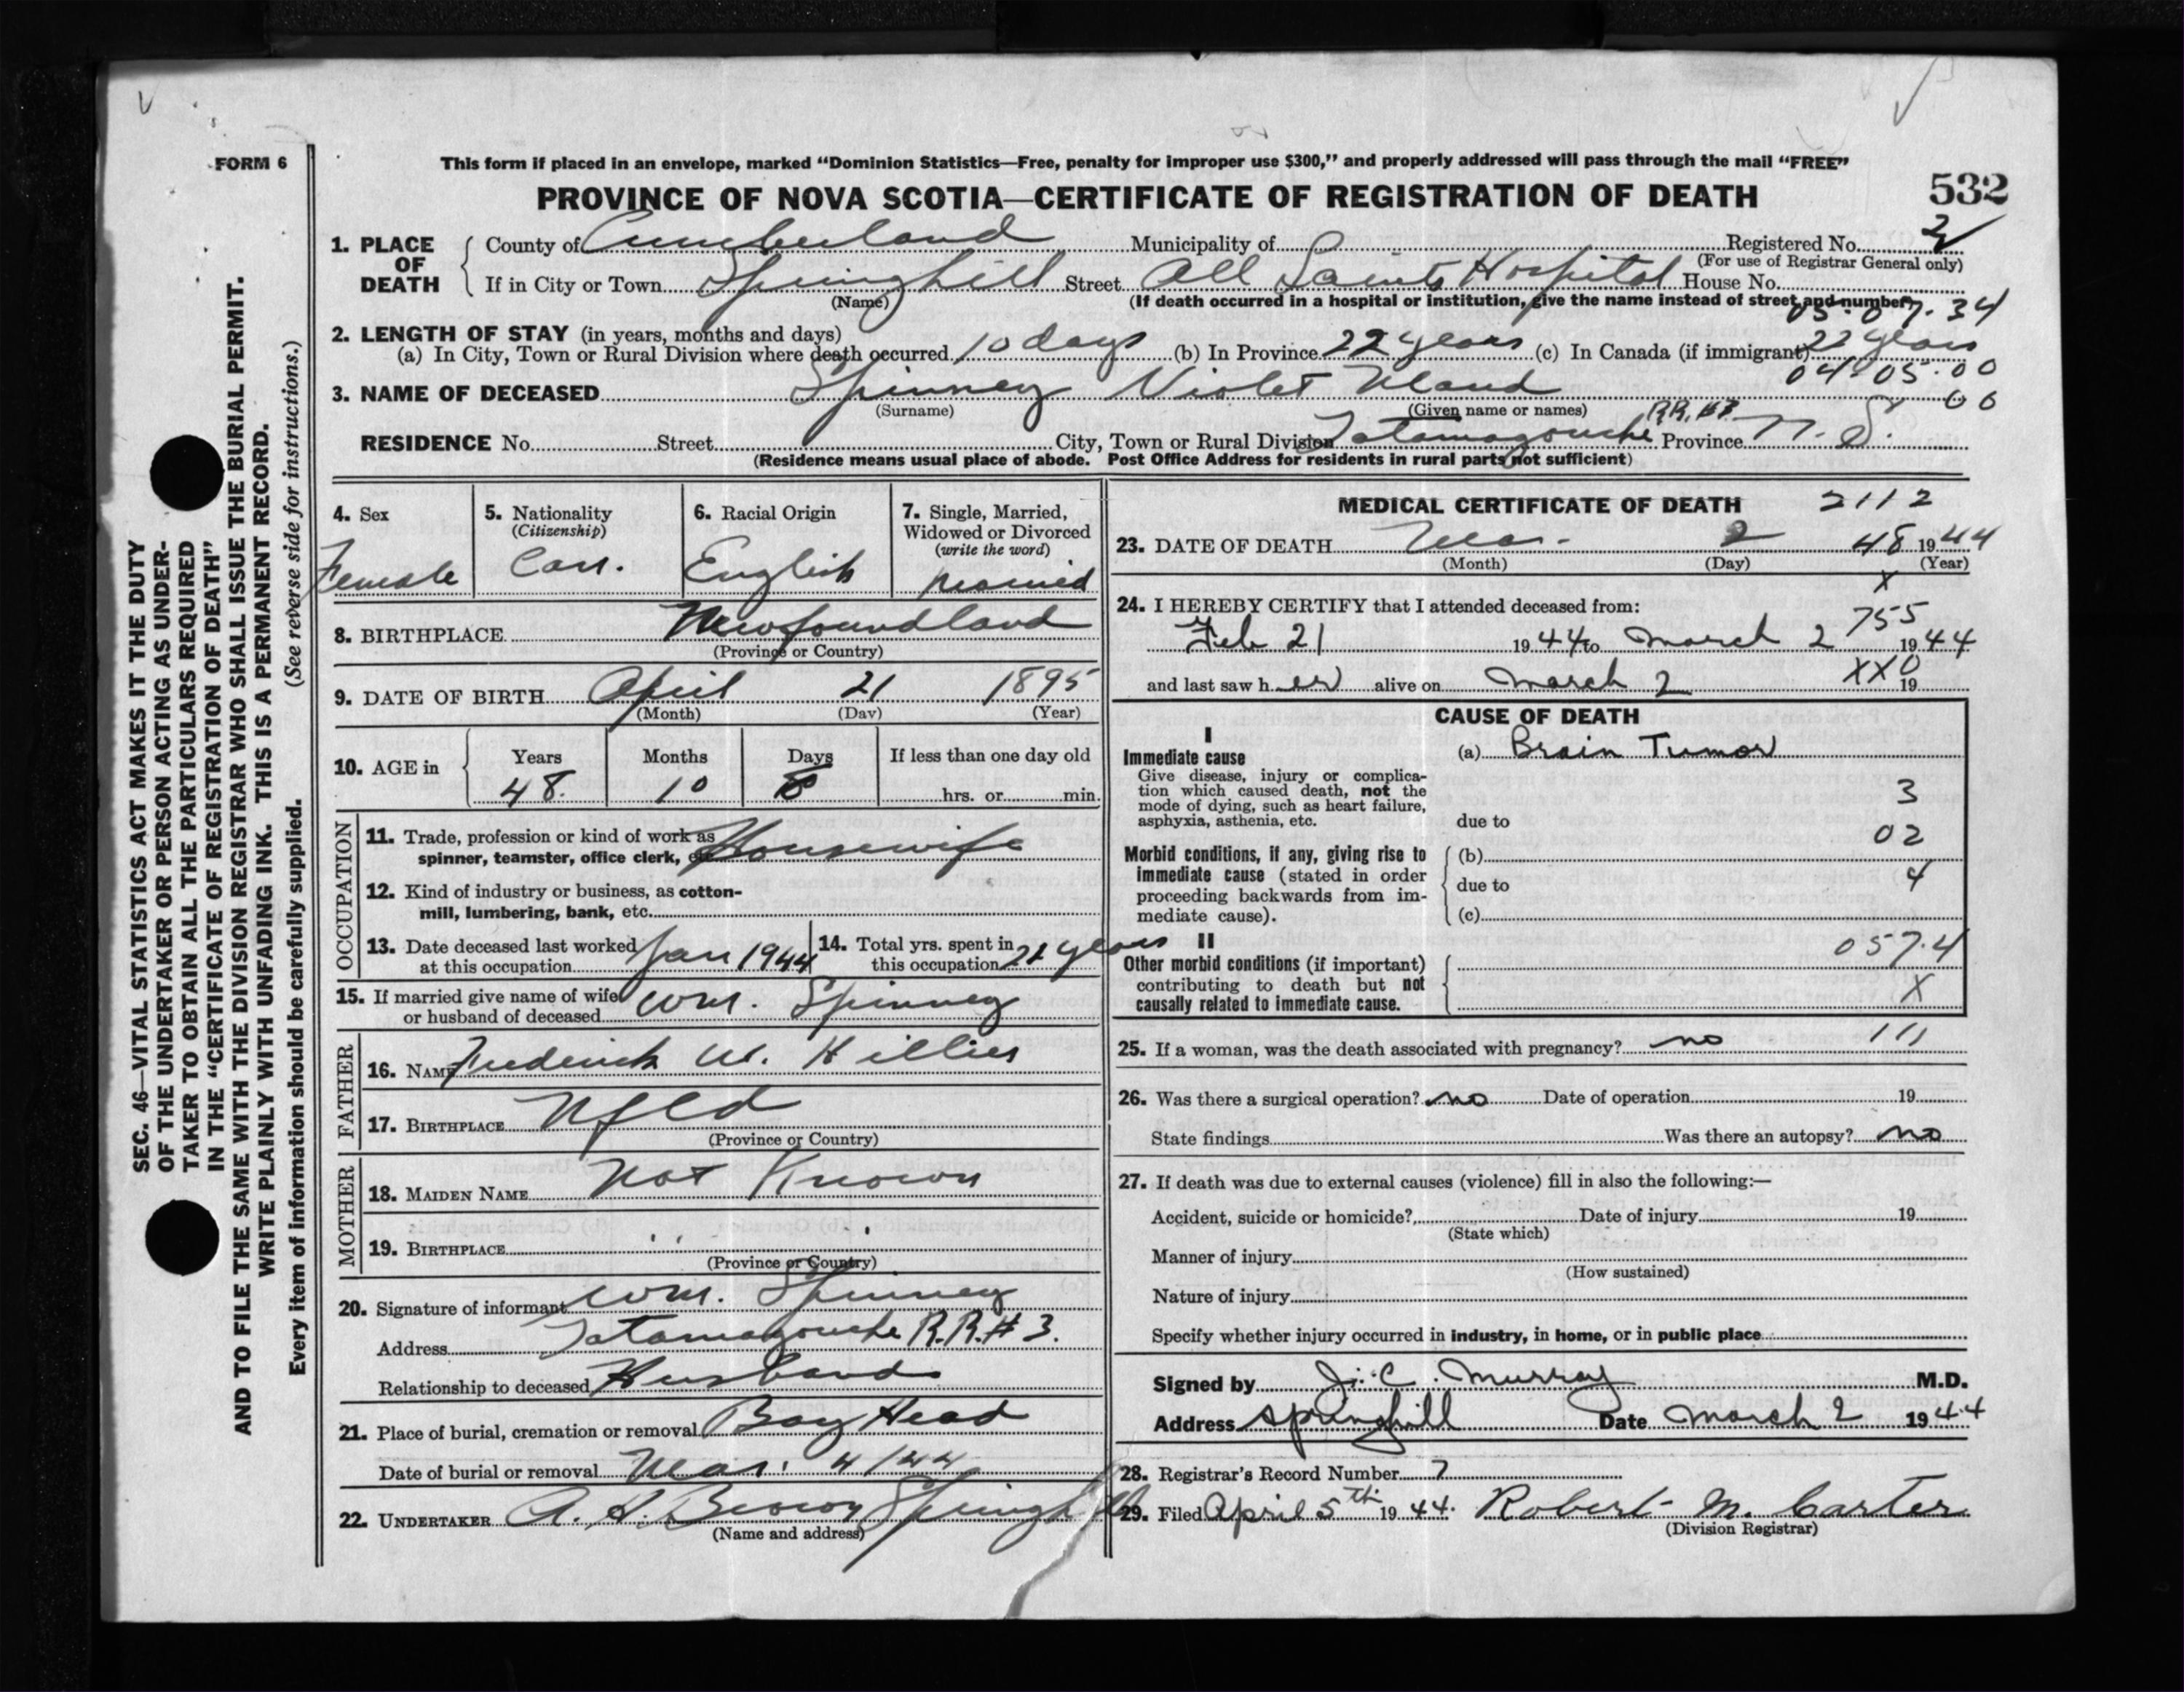 FORM 6
This form if placed in an envelope, marked “Dominion Statistics—Free, penalty for improper use $300,” and properly addressed will pass through the mail “FREE”
PROVINCE OF NOVA SCOTIA—CERTIFICATE OF REGISTRATION OF DEATH
532
1. PLACE OF DEATH
County of Cumberland Municipality of Registered No. 2
(For use of Registrar General only)
If in City or Town Springhill Street All Saints Hospital House No.
(Name) (If death occurred in a hospital or institution, give the name instead of street and number)
05.07.34
2. LENGTH OF STAY (in years, months and days)
(a) In City, Town or Rural Division where death occurred 10 days (b) In Province 22 years (c) In Canada (if immigrant) 22 years
04.05.00
3. NAME OF DECEASED Spinney Violet Maud
00
(Surname) (Given name or names)
RESIDENCE No. Street City, Town or Rural Division Tatamagouche R.R.#3. Province N.S.
(Residence means usual place of abode. Post Office Address for residents in rural parts not sufficient)
4. Sex
Female
5. Nationality
(Citizenship)
Can.
6. Racial Origin
English
7. Single, Married,
Widowed or Divorced
(write the word)
Married
8. BIRTHPLACE Newfoundland
(Province or Country)
9. DATE OF BIRTH April 21 1895
(Month) (Day) (Year)
10. AGE in
Years Months Days If less than one day old
48. 10 hrs. or min.
OCCUPATION
11. Trade, profession or kind of work as
spinner, teamster, office clerk, etc. Housewife
12. Kind of industry or business, as cotton-
mill, lumbering, bank, etc.
13. Date deceased last worked
at this occupation Jan 1944
14. Total yrs. spent in
this occupation 22 years
15. If married give name of wife
or husband of deceased Wm. Spinney
FATHER
16. NAME Frederick W. Hillier
17. BIRTHPLACE Nfld
(Province or Country)
MOTHER
18. MAIDEN NAME Not Known
19. BIRTHPLACE
(Province or Country)
20. Signature of informant Wm. Spinney
Address Tatamagouche R.R.# 3.
Relationship to deceased Husband
21. Place of burial, cremation or removal Bay Head
Date of burial or removal Mar. 4/44
22. UNDERTAKER A. H. Brown Springhill
(Name and address)
MEDICAL CERTIFICATE OF DEATH 2112
23. DATE OF DEATH Mar. 2 48 1944
(Month) (Day) (Year)
X
24. I HEREBY CERTIFY that I attended deceased from:
755
Feb 21 1944 to March 2 1944
XX0
and last saw her alive on March 2 19
CAUSE OF DEATH
I
Immediate cause
Give disease, injury or complica-
tion which caused death, not the
mode of dying, such as heart failure,
asphyxia, asthenia, etc.
(a) Brain Tumor
3
due to
02
Morbid conditions, if any, giving rise to
immediate cause (stated in order
proceeding backwards from im-
mediate cause).
(b)
due to
4
(c)
II
Other morbid conditions (if important)
contributing to death but not
causally related to immediate cause.
057.4
X
25. If a woman, was the death associated with pregnancy? no 111
26. Was there a surgical operation? no Date of operation 19
State findings Was there an autopsy? no
27. If death was due to external causes (violence) fill in also the following:—
Accident, suicide or homicide? Date of injury 19
(State which)
Manner of injury
(How sustained)
Nature of injury
Specify whether injury occurred in industry, in home, or in public place
Signed by J. C. Murray M.D.
Address Springhill Date March 2 1944
28. Registrar's Record Number 7
29. Filed April 5th 1944. Robert M. Carter
(Division Registrar)
SEC. 46—VITAL STATISTICS ACT MAKES IT THE DUTY
OF THE UNDERTAKER OR PERSON ACTING AS UNDER-
TAKER TO OBTAIN ALL THE PARTICULARS REQUIRED
IN THE “CERTIFICATE OF REGISTRATION OF DEATH”
AND TO FILE THE SAME WITH THE DIVISION REGISTRAR WHO SHALL ISSUE THE BURIAL PERMIT.
WRITE PLAINLY WITH UNFADING INK. THIS IS A PERMANENT RECORD.
Every item of information should be carefully supplied. (See reverse side for instructions.)